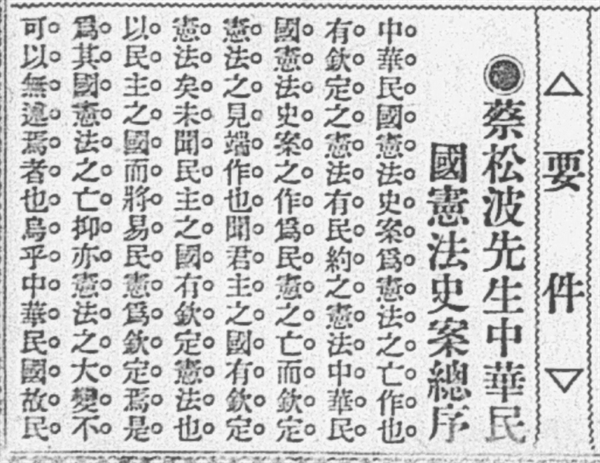 △要件▽
◉蔡松波先生中華民
國憲法史案總序
中華民國憲法史案爲憲法之亡作也
有欽定之憲法有民約之憲法中華民
國憲法史案之作爲民憲之亡而欽定
憲法之見端作也聞君主之國有欽定
憲法矣未聞民主之國有欽定憲法也
以民主之國而將易民憲爲欽定焉是
爲其國憲法之亡抑亦憲法之大變不
可以無述焉者也烏乎中華民國故民